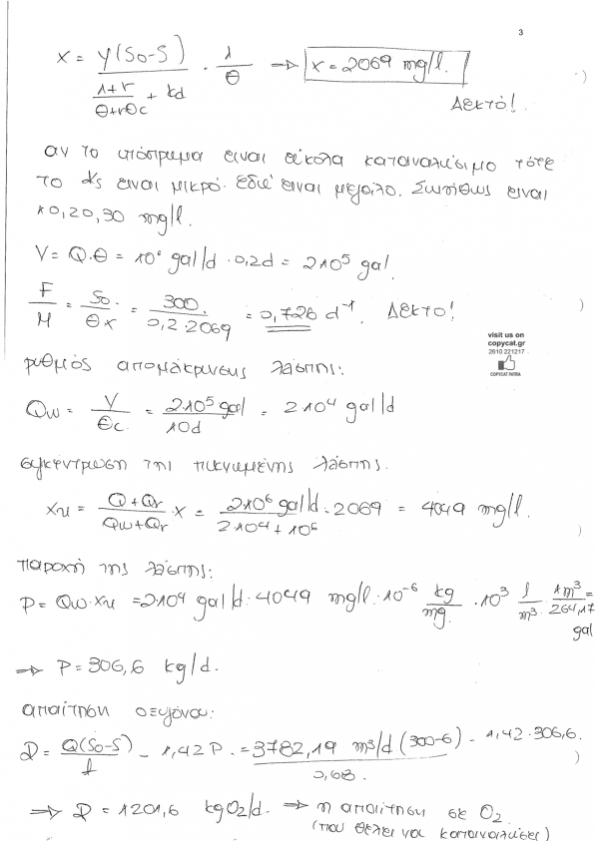 3
x = y(So-S) / ((1+r)/(θ+rθc) + kd) · 1/θ → x = 2069 mg/l.
Δεκτό!
αν το υπόστρωμα ειναι εύκολα καταναλώσιμο τότε
το ks ειναι μικρό. Εδώ ειναι μεγάλο. Συνήθως ειναι
10,20,30 mg/l.
V = Q.θ = 10⁶ gal/d · 0,2d = 2 10⁵ gal.
F/M = So/(θx) = 300/(0,2·2069) = 0,726 d⁻¹. Δεκτο!
visit us on
copycat.gr
2610 221217
COPYCAT PATRA
ρυθμός απομάκρυνσης λάσπης:
Qw = V/θc = 2 10⁵ gal/10d = 2 10⁴ gal/d
συγκέντρωση της πυκνωμένης λάσπης.
xu = (Q+Qr)/(Qw+Qr) · x = (2 10⁶ gal/d)/(2 10⁴ + 10⁶) · 2069 = 4049 mg/l.
παροχή της λάσπης:
P = Qw·xu = 2 10⁴ gal/d · 4049 mg/l · 10⁻⁶ kg/mg · 10³ l/m³ · 1m³/264,17 gal =
→ P = 306,6 kg/d.
απαίτηση οξυγόνου:
D = Q(So-S)/f - 1,42 P = 3782,19 m³/d (300-6)/0,68 - 1,42·306,6.
→ D = 1201,6 kgO₂/d. → η απαίτηση σε O₂
(που θέλει να καταναλώσει)